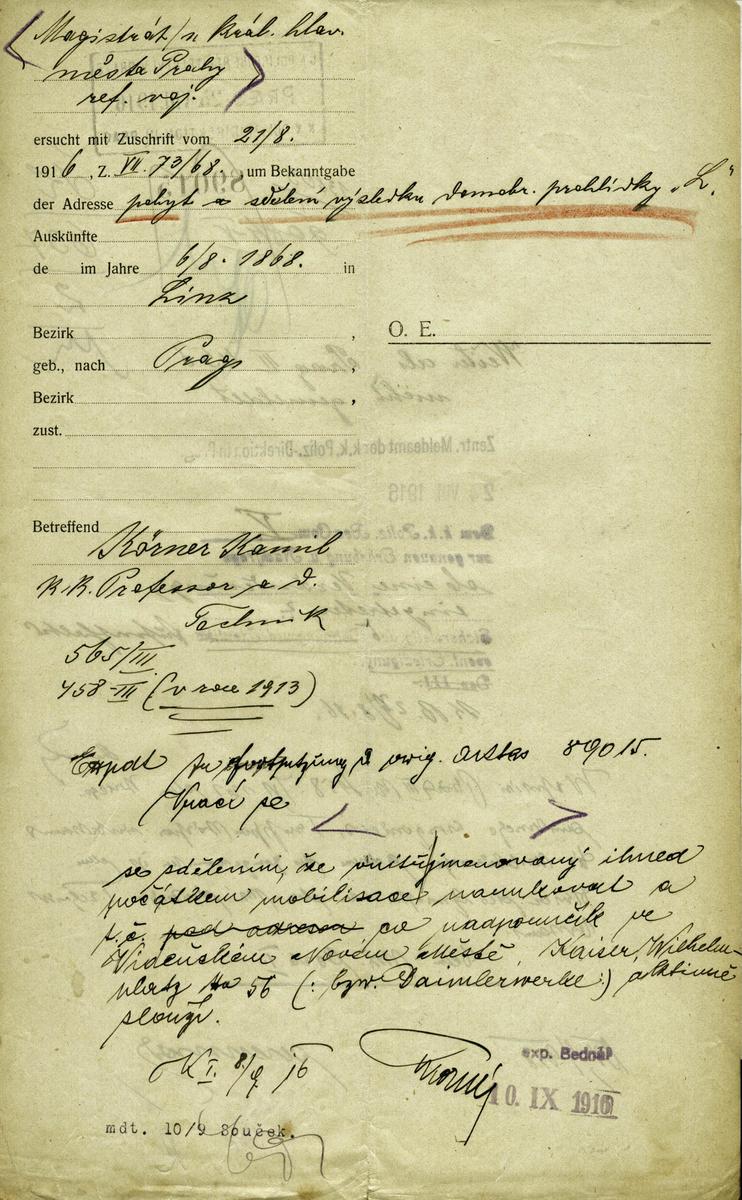 Magistrát /n král. hlav.
města Prahy
ref. voj.
ersucht mit Zuschrift vom 21/8.
1916, Z. VII. 73/68., um Bekanntgabe
der Adresse pobyt a sdělení výsledku domobr. prohlídky „L."
Auskünfte
de im Jahre 6/8. 1868. in
Linz
Bezirk ,
O. E.
geb., nach Prag ,
Bezirk ,
zust.
Betreffend
Körner Kamil
k.k. Professor a d.
Technik
565/III
458-III (v roce 1913)
orig. 89015.
Vrací se
se sdělením, že vnitřjmenovaný ihned
počátkem mobilisace narukoval a
t.č. pod adresou co nadporučík ve
Vídeňském Novém Městě, Kaiser Wilhelm-
platz No 56 (: bzw. Daimlerwerke:) aktivně
slouží.
8/9 16
exp. Bednář
10. IX 1916
mdt. 10/9 Souček.